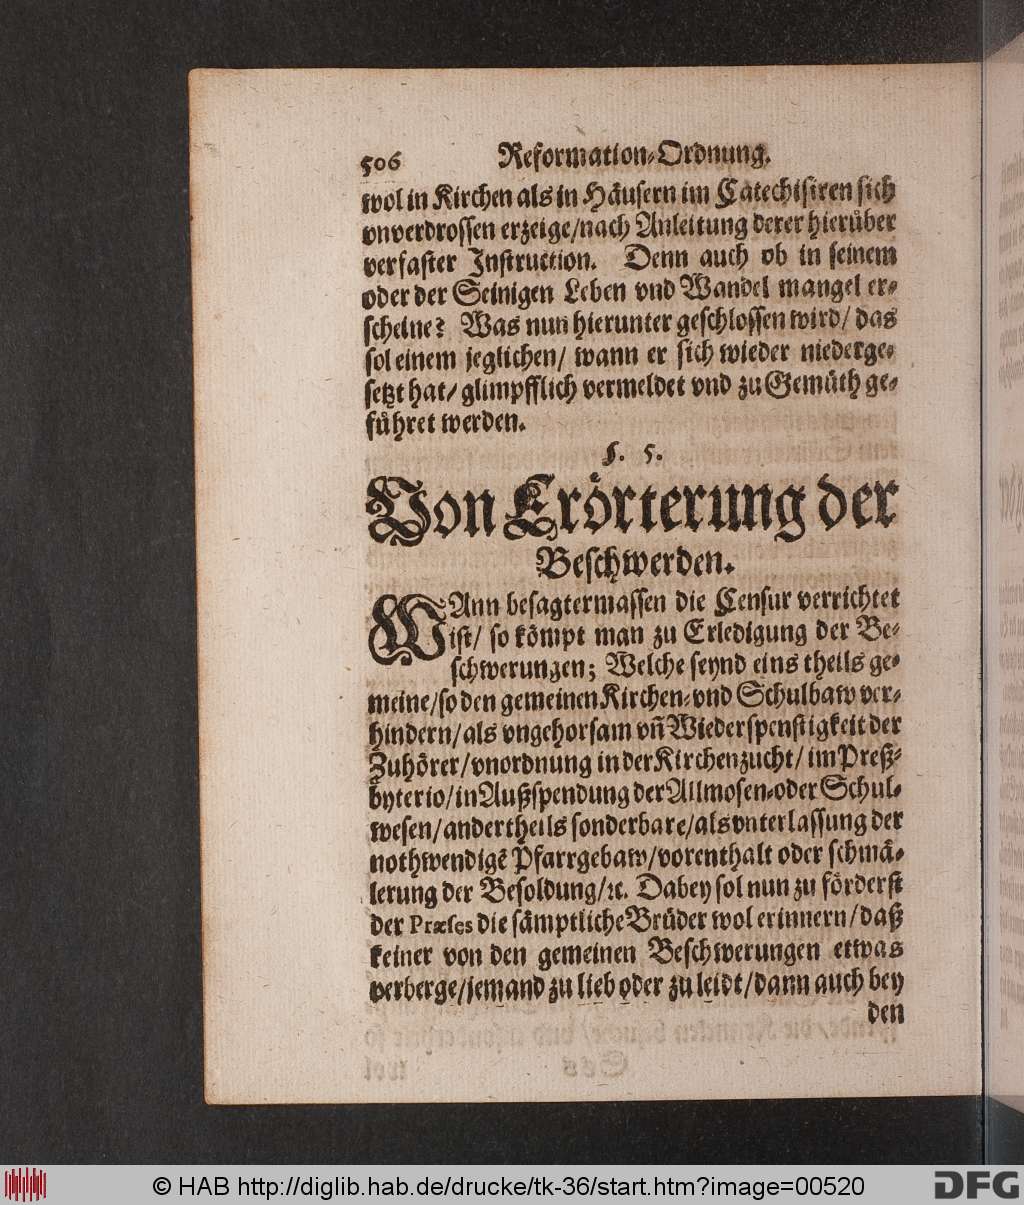 506 Reformation-Ordnung.
wol in Kirchen als in Häusern im Catechisiren sich
vnverdrossen erzeige/nach Anleitung derer hierüber
verfaster Instruction. Denn auch ob in seinem
oder der Seinigen Leben vnd Wandel mangel er-
scheine? Was nun hierunter geschlossen wird/ das
sol einem jeglichen/ wann er sich wieder niederge-
setzt hat/ glimpfflich vermeldet vnd zu Gemüth ge-
führet werden.
§. 5.
Von Erörterung der
Beschwerden.
WAnn besagtermassen die Censur verrichtet
ist/ so kömpt man zu Erledigung der Be-
schwerungen; Welche seynd eins theils ge-
meine/so den gemeinen Kirchen-vnd Schulbaw ver-
hindern/als vngehorsam vñ Wiederspenstigkeit der
Zuhörer/vnordnung in der Kirchenzucht/ im Preß-
byterio/in Außspendung der Allmosen-oder Schul-
wesen/andertheils sonderbare/als vnterlassung der
nothwendigẽ Pfarrgebaw/vorenthalt oder schmä-
lerung der Besoldung/ꝛc. Dabey sol nun zu förderst
der Præses die sämptliche Brüder wol erinnern/daß
keiner von den gemeinen Beschwerungen etwas
verberge/jemand zu lieb oder zu leidt/dann auch bey
den
© HAB http://diglib.hab.de/drucke/tk-36/start.htm?image=00520
DFG